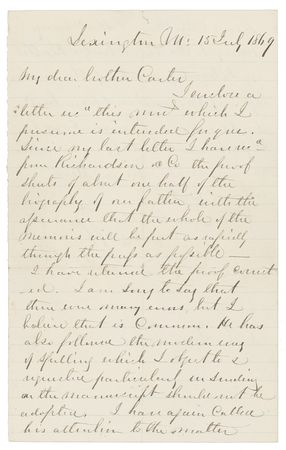 Lexington Va: 15 July 1869
My dear brother Carter,
I enclose a
letter recd this mor^g which I
presume is intended for you.
Since my last letter I have recd
from Richardson & Co the proof
sheets of about one half of the
biography of our father, with the
assurance that the whole of the
Memoirs will be put as rapidly
through the press as possible —
I have returned the proof correct
ed. I am sorry to say that
there were many errors, but I
believe that is common. He has
also followed the modern way
of spelling which I object to &
requested particularly in sending
on the manuscript should not be
adopted. I have again called
his attention to the matter